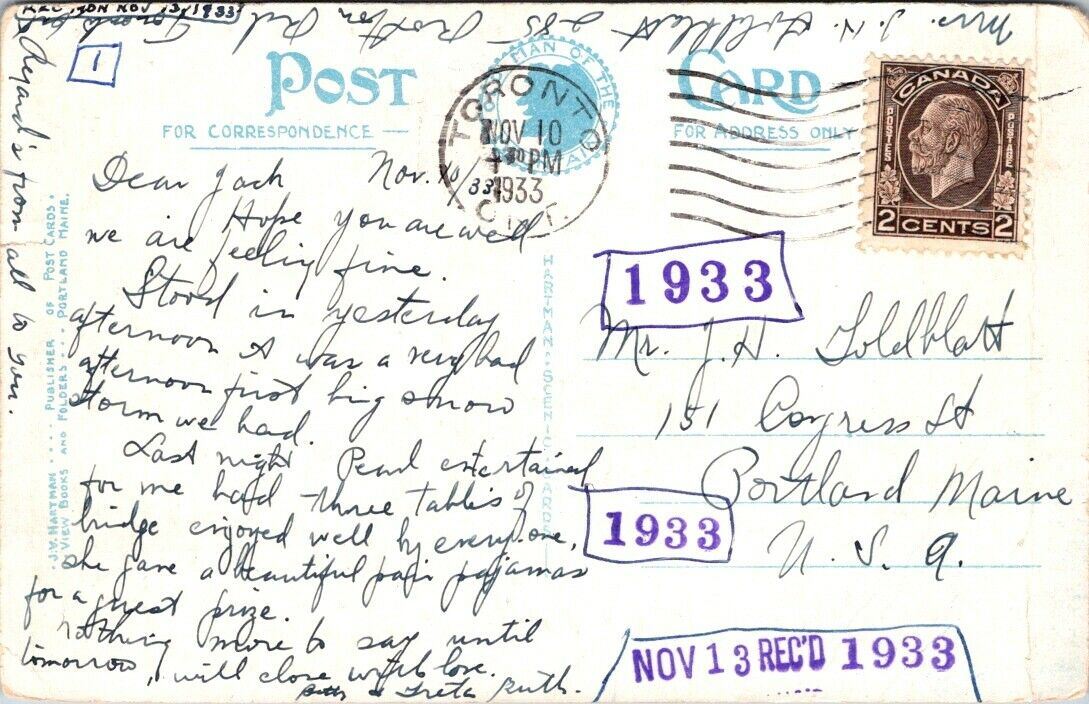 REC'D MON NOV 13, 1933
Mrs. J. H. Goldblatt 285
1
POST CARD
FOR CORRESPONDENCE
FOR ADDRESS ONLY
MAN OF THE
TORONTO
NOV 10
30 PM
1933
ONT.
CANADA
POSTES POSTAGE
2 CENTS 2
Dear Jack Nov. 10/33
Hope you are well
we are feeling fine.
Stood in yesterday
afternoon it was a very bad
afternoon first big snow
storm we had.
Last night Pearl entertained
for me had three tables of
bridge enjoyed well by everyone,
she gave a beautiful pair pajamas
for a guest prize.
Nothing more to say until
tomorrow, will close with love.
Betty & Freta Ruth.
Regard's from all to you.
J.V. HARTMAN PUBLISHER OF POST CARDS.
VIEW BOOKS AND FOLDERS PORTLAND MAINE.
HARTMAN SCENIC CARDS
1933
Mr. J. H. Goldblatt
151 Congress St
Portland Maine
U. S. A.
1933
NOV 13 REC'D 1933